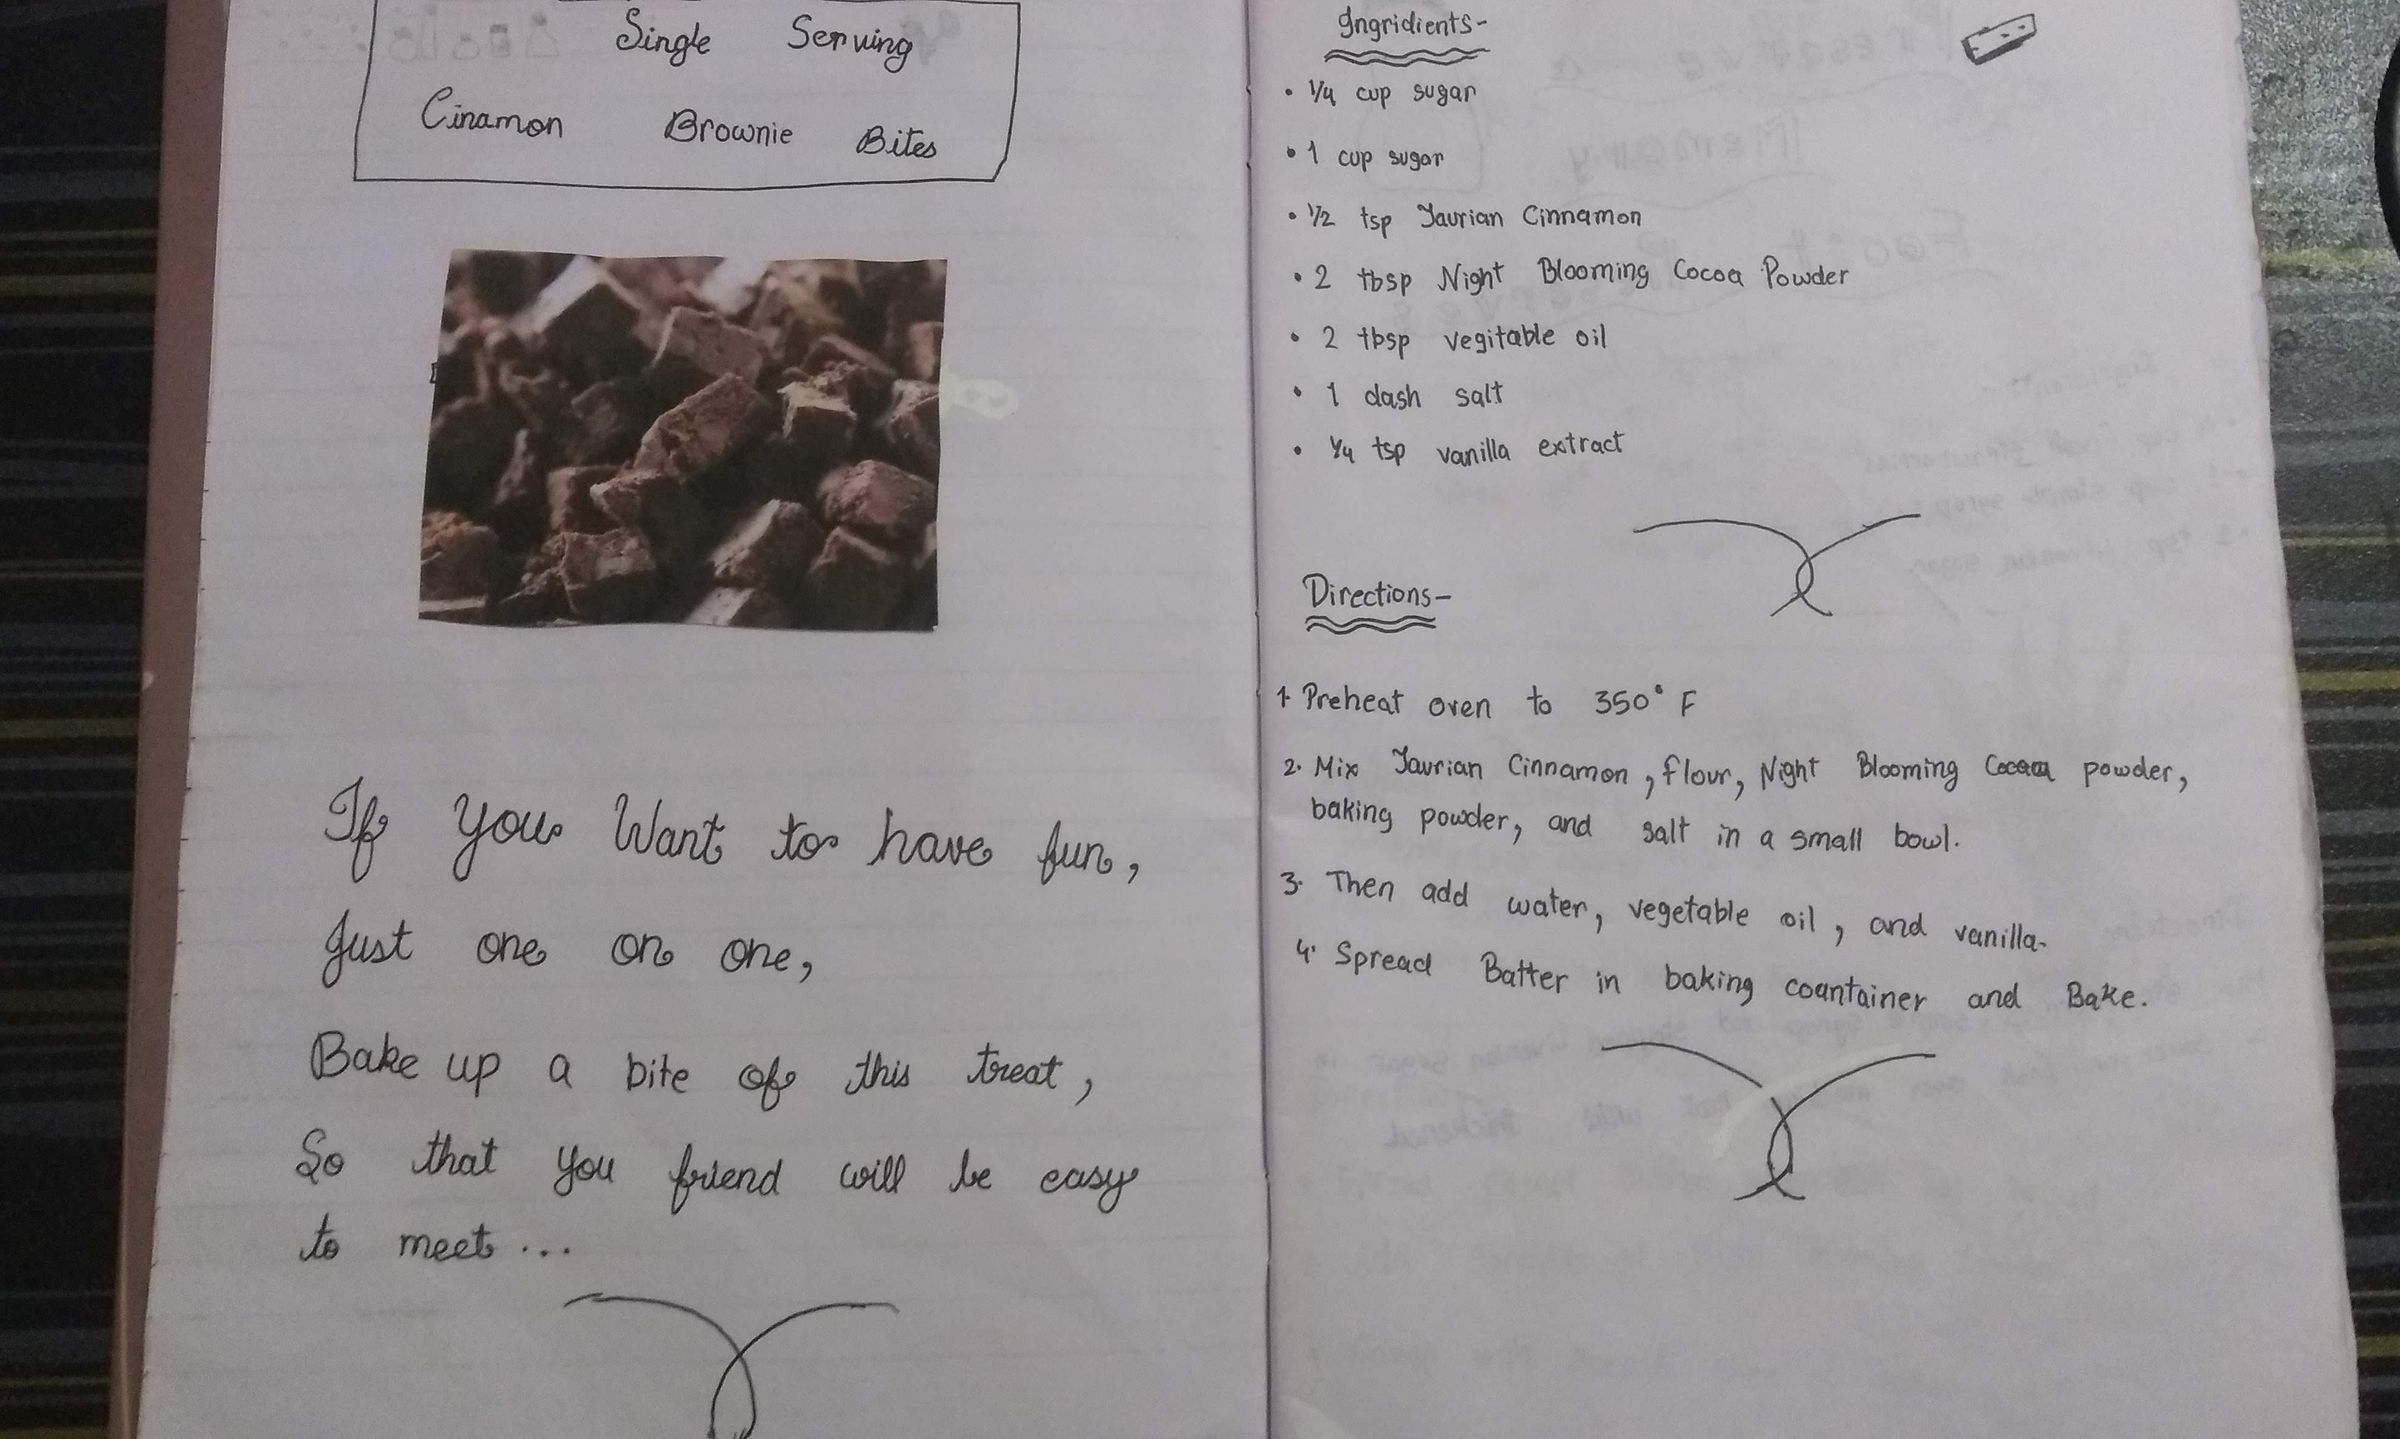 Single Serving
Cinamon Brownie Bites
If you Want to have fun,
Just one on one,
Bake up a bite of this treat,
So that you friend will be easy
to meet...
Ingridients-
• 1/4 cup sugar
• 1 cup sugar
• 1/2 tsp Taurian Cinnamon
• 2 tbsp Night Blooming Cocoa Powder
• 2 tbsp vegitable oil
• 1 dash salt
• 1/4 tsp vanilla extract
Directions-
1. Preheat oven to 350° F
2. Mix Taurian Cinnamon, flour, Night Blooming Cocoa powder,
baking powder, and salt in a small bowl.
3. Then add water, vegetable oil, and vanilla.
4. Spread Batter in baking countainer and Bake.